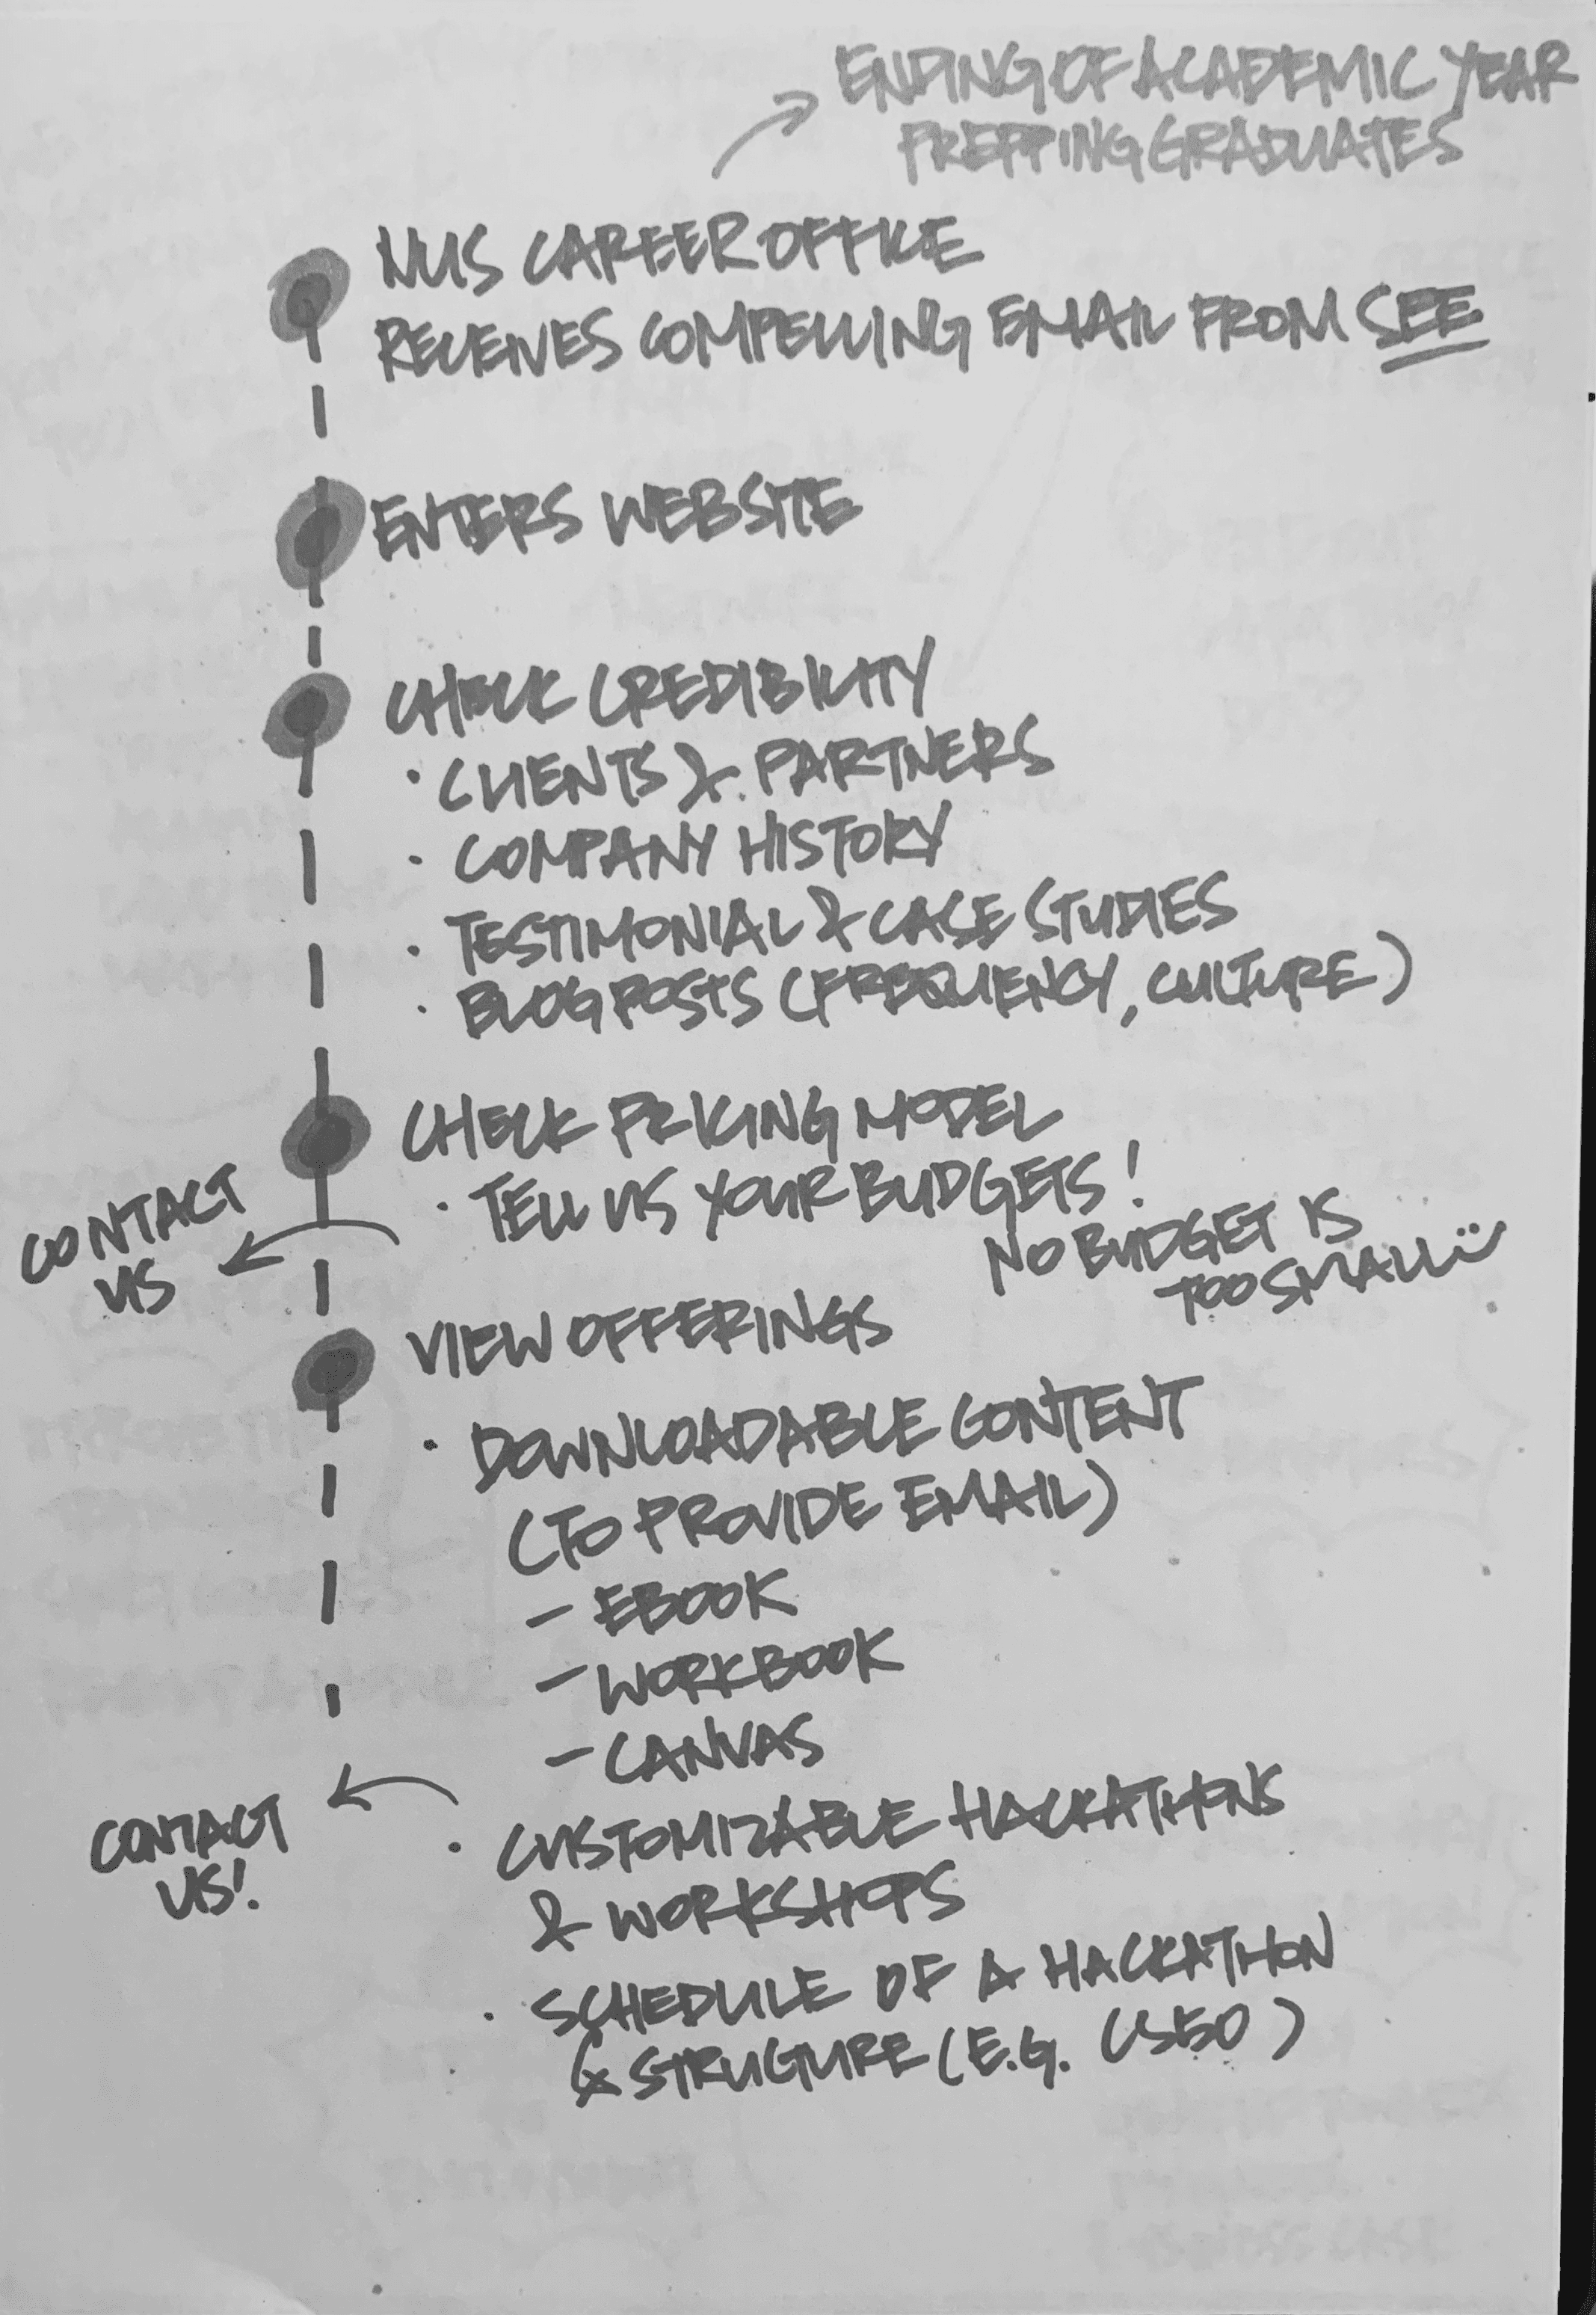 ENDING OF ACADEMIC YEAR
PREPPING GRADUATES
NUS CAREER OFFICE
RECEIVES COMPELLING EMAIL FROM SEE
ENTERS WEBSITE
CHECK CREDIBILITY
· CLIENTS & PARTNERS
· COMPANY HISTORY
· TESTIMONIAL & CASE STUDIES
· BLOG POSTS (FREQUENCY, CULTURE)
CHECK PRICING MODEL
· TELL US YOUR BUDGETS!
NO BUDGET IS
TOO SMALL
CONTACT
US
VIEW OFFERINGS
· DOWNLOADABLE CONTENT
(TO PROVIDE EMAIL)
- EBOOK
- WORKBOOK
- CANVAS
CONTACT
US!
· CUSTOMIZABLE HACKATHONS
& WORKSHOPS
· SCHEDULE OF A HACKATHON
& STRUCTURE (E.G. CS50)